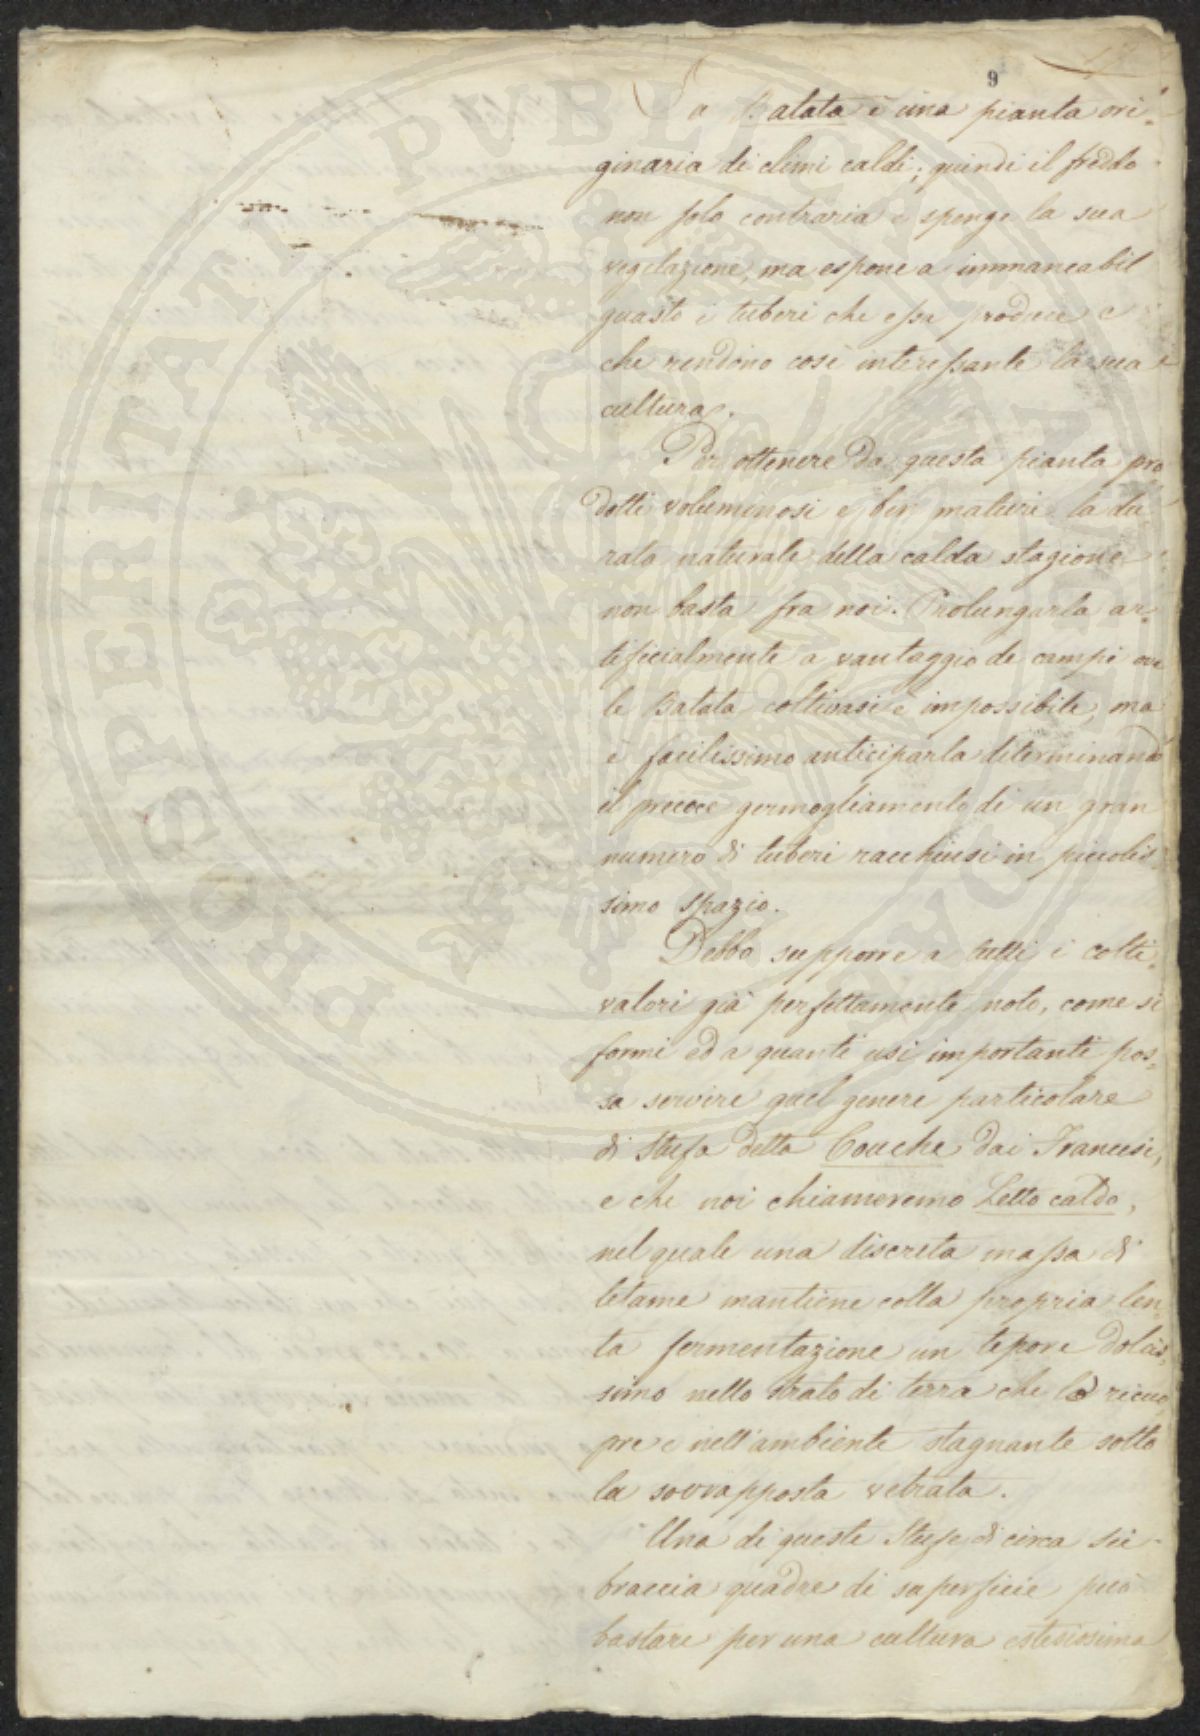 9
La Batata è una pianta ori=
ginaria di climi caldi; quindi il freddo
non solo contraria e spenge la sua
vegetazione, ma espone a immancabil
guasto i tuberi che essa produce e
che rendono così interessante la sua
cultura.
Per ottenere da questa pianta pro
dotti voluminosi e ben maturi la du
rata naturale della calda stagione
non basta fra noi. Prolungarla ar=
tificialmente a vantaggio de campi ove
le Batata coltivasi è impossibile, ma
è facilissimo anticiparla diterminando
il precoce germogliamento di un gran
numero di tuberi racchiusi in piccolis=
simo spazio.
Debbo supporre a tutti i colti=
vatori già perfettamente noto, come si
formi ed a quanti usi importanti pos=
sa servire quel genere particolare
di stufa detta Couche dai Francesi,
e che noi chiameremo Letto caldo,
nel quale una discreta massa di
letame mantiene colla propria len=
ta fermentazione un tepore dolcis=
simo nello strato di terra che lo ricuo
pre e nell'ambiente stagnante sotto
la sovrapposta vetrata.
Una di queste Stufe di circa sei
braccia quadre di superficie può
bastare per una cultura estesissima
PROSPERITATI PUBLICAE AUGENDAE